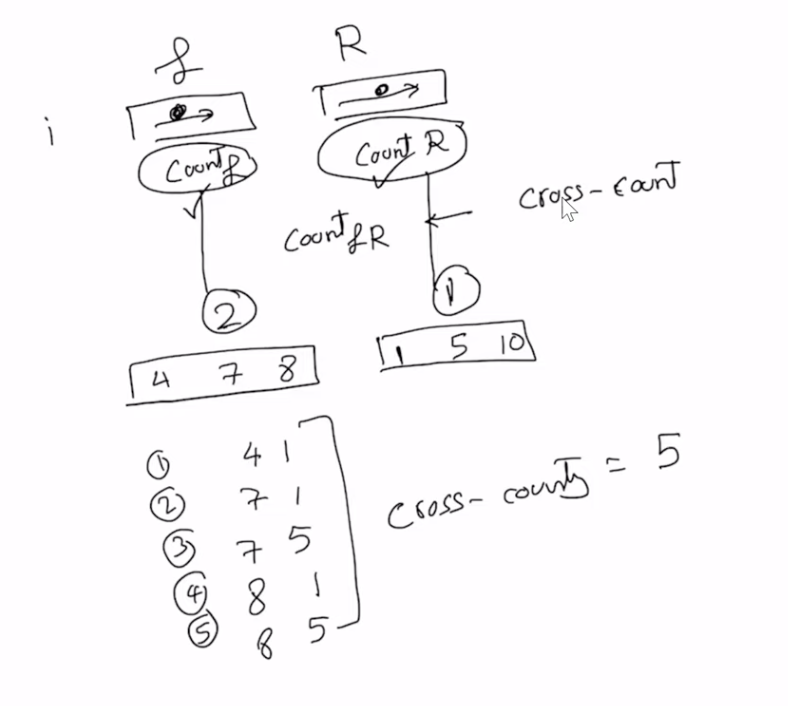 L R
i
Count L Count R
Count LR
cross-count
2 1
4 7 8 1 5 10
① 4 1
② 7 1
③ 7 5
④ 8 1
⑤ 8 5
cross-counts = 5